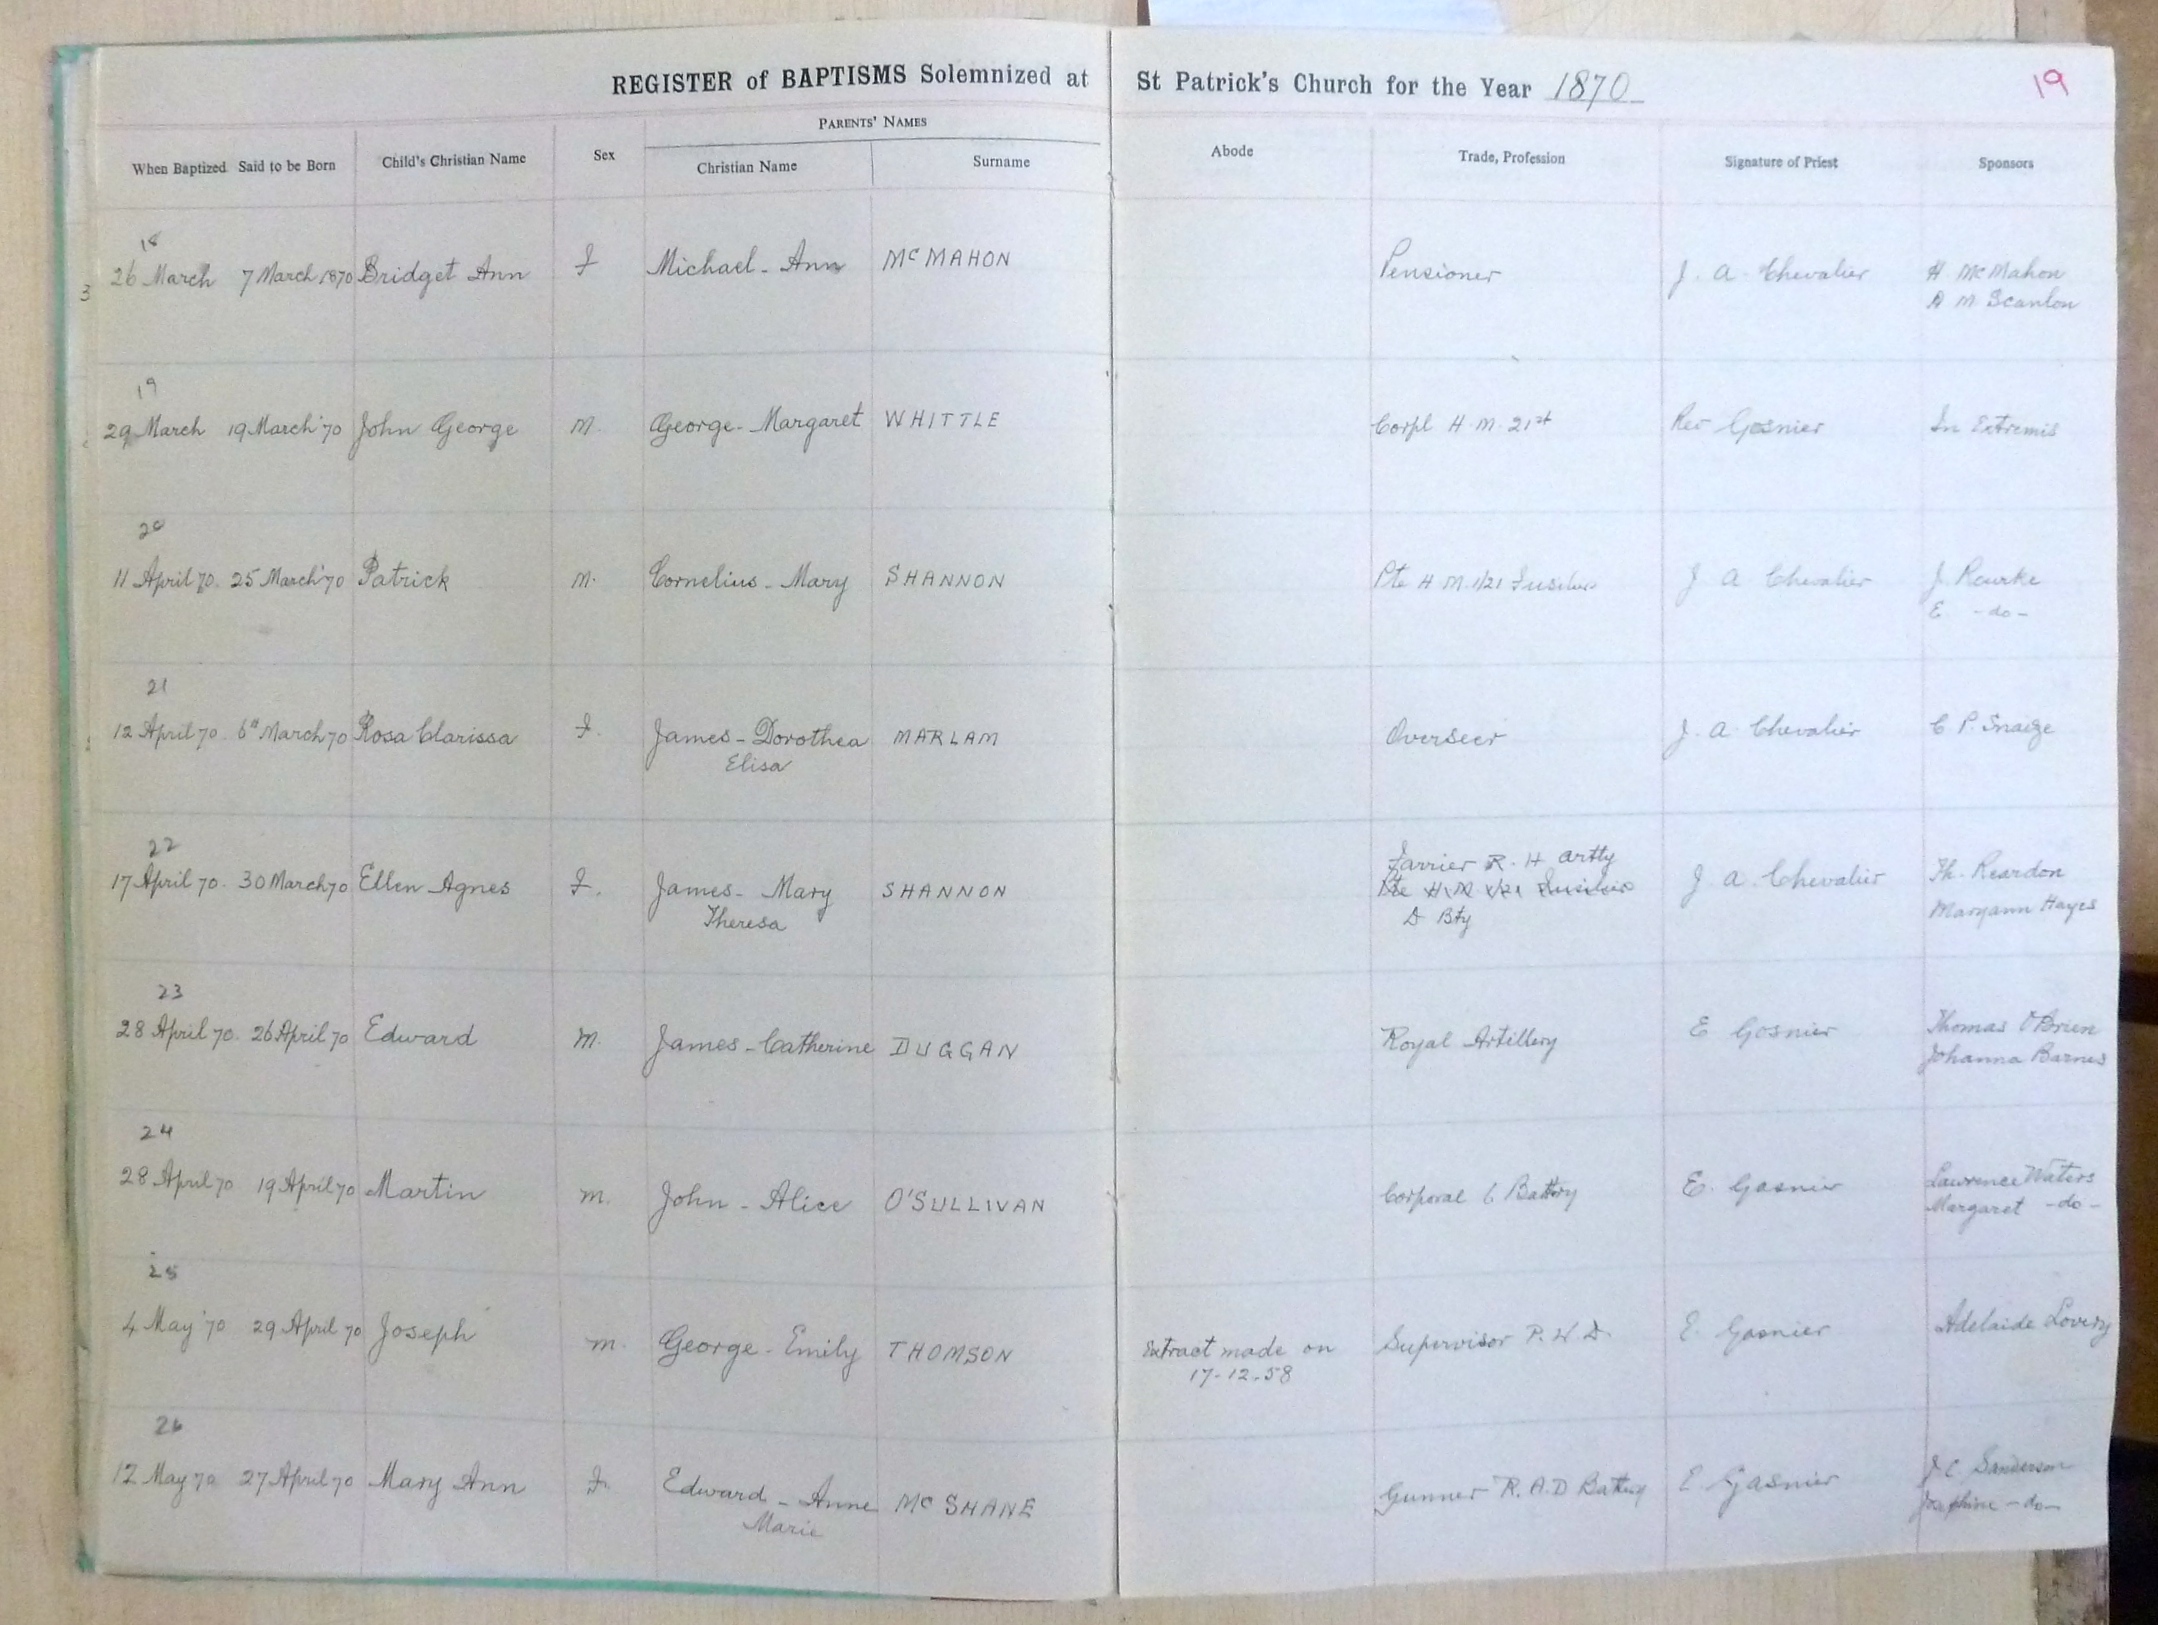 REGISTER of BAPTISMS Solemnized at St Patrick's Church for the Year 1870
19
PARENTS' NAMES
When Baptized Said to be Born Child's Christian Name Sex Christian Name Surname Abode Trade, Profession Signature of Priest Sponsors
18
26 March 7 March 1870 Bridget Ann F Michael - Ann McMAHON Pensioner J. A. Chevalier H McMahon
A M Scanlon
3
19
29 March 19 March '70 John George M. George - Margaret WHITTLE Corpl H. M. 21st Rev Gosnier In Extremis
20
11 April 70. 25 March '70 Patrick M. Cornelius - Mary SHANNON Pte H M. 1/21 Fusilier J A Chevalier J. Rourke
E - do -
21
12 April 70 6th March 70 Rosa Clarissa F. James - Dorothea MARLAM Overseer J. A. Chevalier C P.
Elisa
22
Farrier R. H Artty
17 April 70. 30 March 70 Ellen Agnes F. James - Mary SHANNON Pte H M 1/21 Fusilier J. A. Chevalier Th. Reardon
Theresa D Bty Maryann Hayes
23
28 April 70. 26 April 70 Edward M. James - Catherine DUGGAN Royal Artillery E Gosnier Thomas O'Brien
Johanna Barnes
24
28 April 70 19 April 70 Martin M. John - Alice O'SULLIVAN Corporal C Battry E. Gasnier Lawrence Waters
Margaret - do -
25
4 May '70 29 April 70 Joseph M. George - Emily THOMSON Extract made on Supervisor P. W. D. E. Gasnier Adelaide Lovery
17-12-58
26
12 May 70 27 April 70 Mary Ann F. Edward - Anne McSHANE Gunner R. A. D Battery E. Gasnier J. C. Sanderson
Marie Josephine - do -